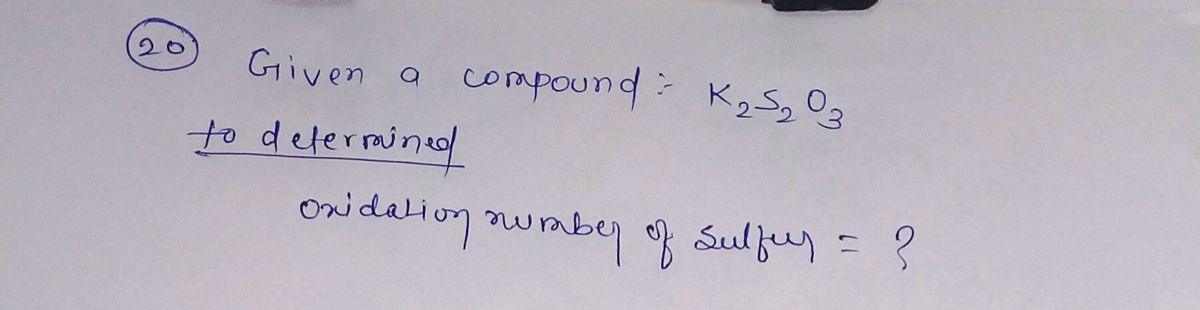 20 Given a compound :- K₂S₂O₃
to determined
oxidation number of sulfur = ?